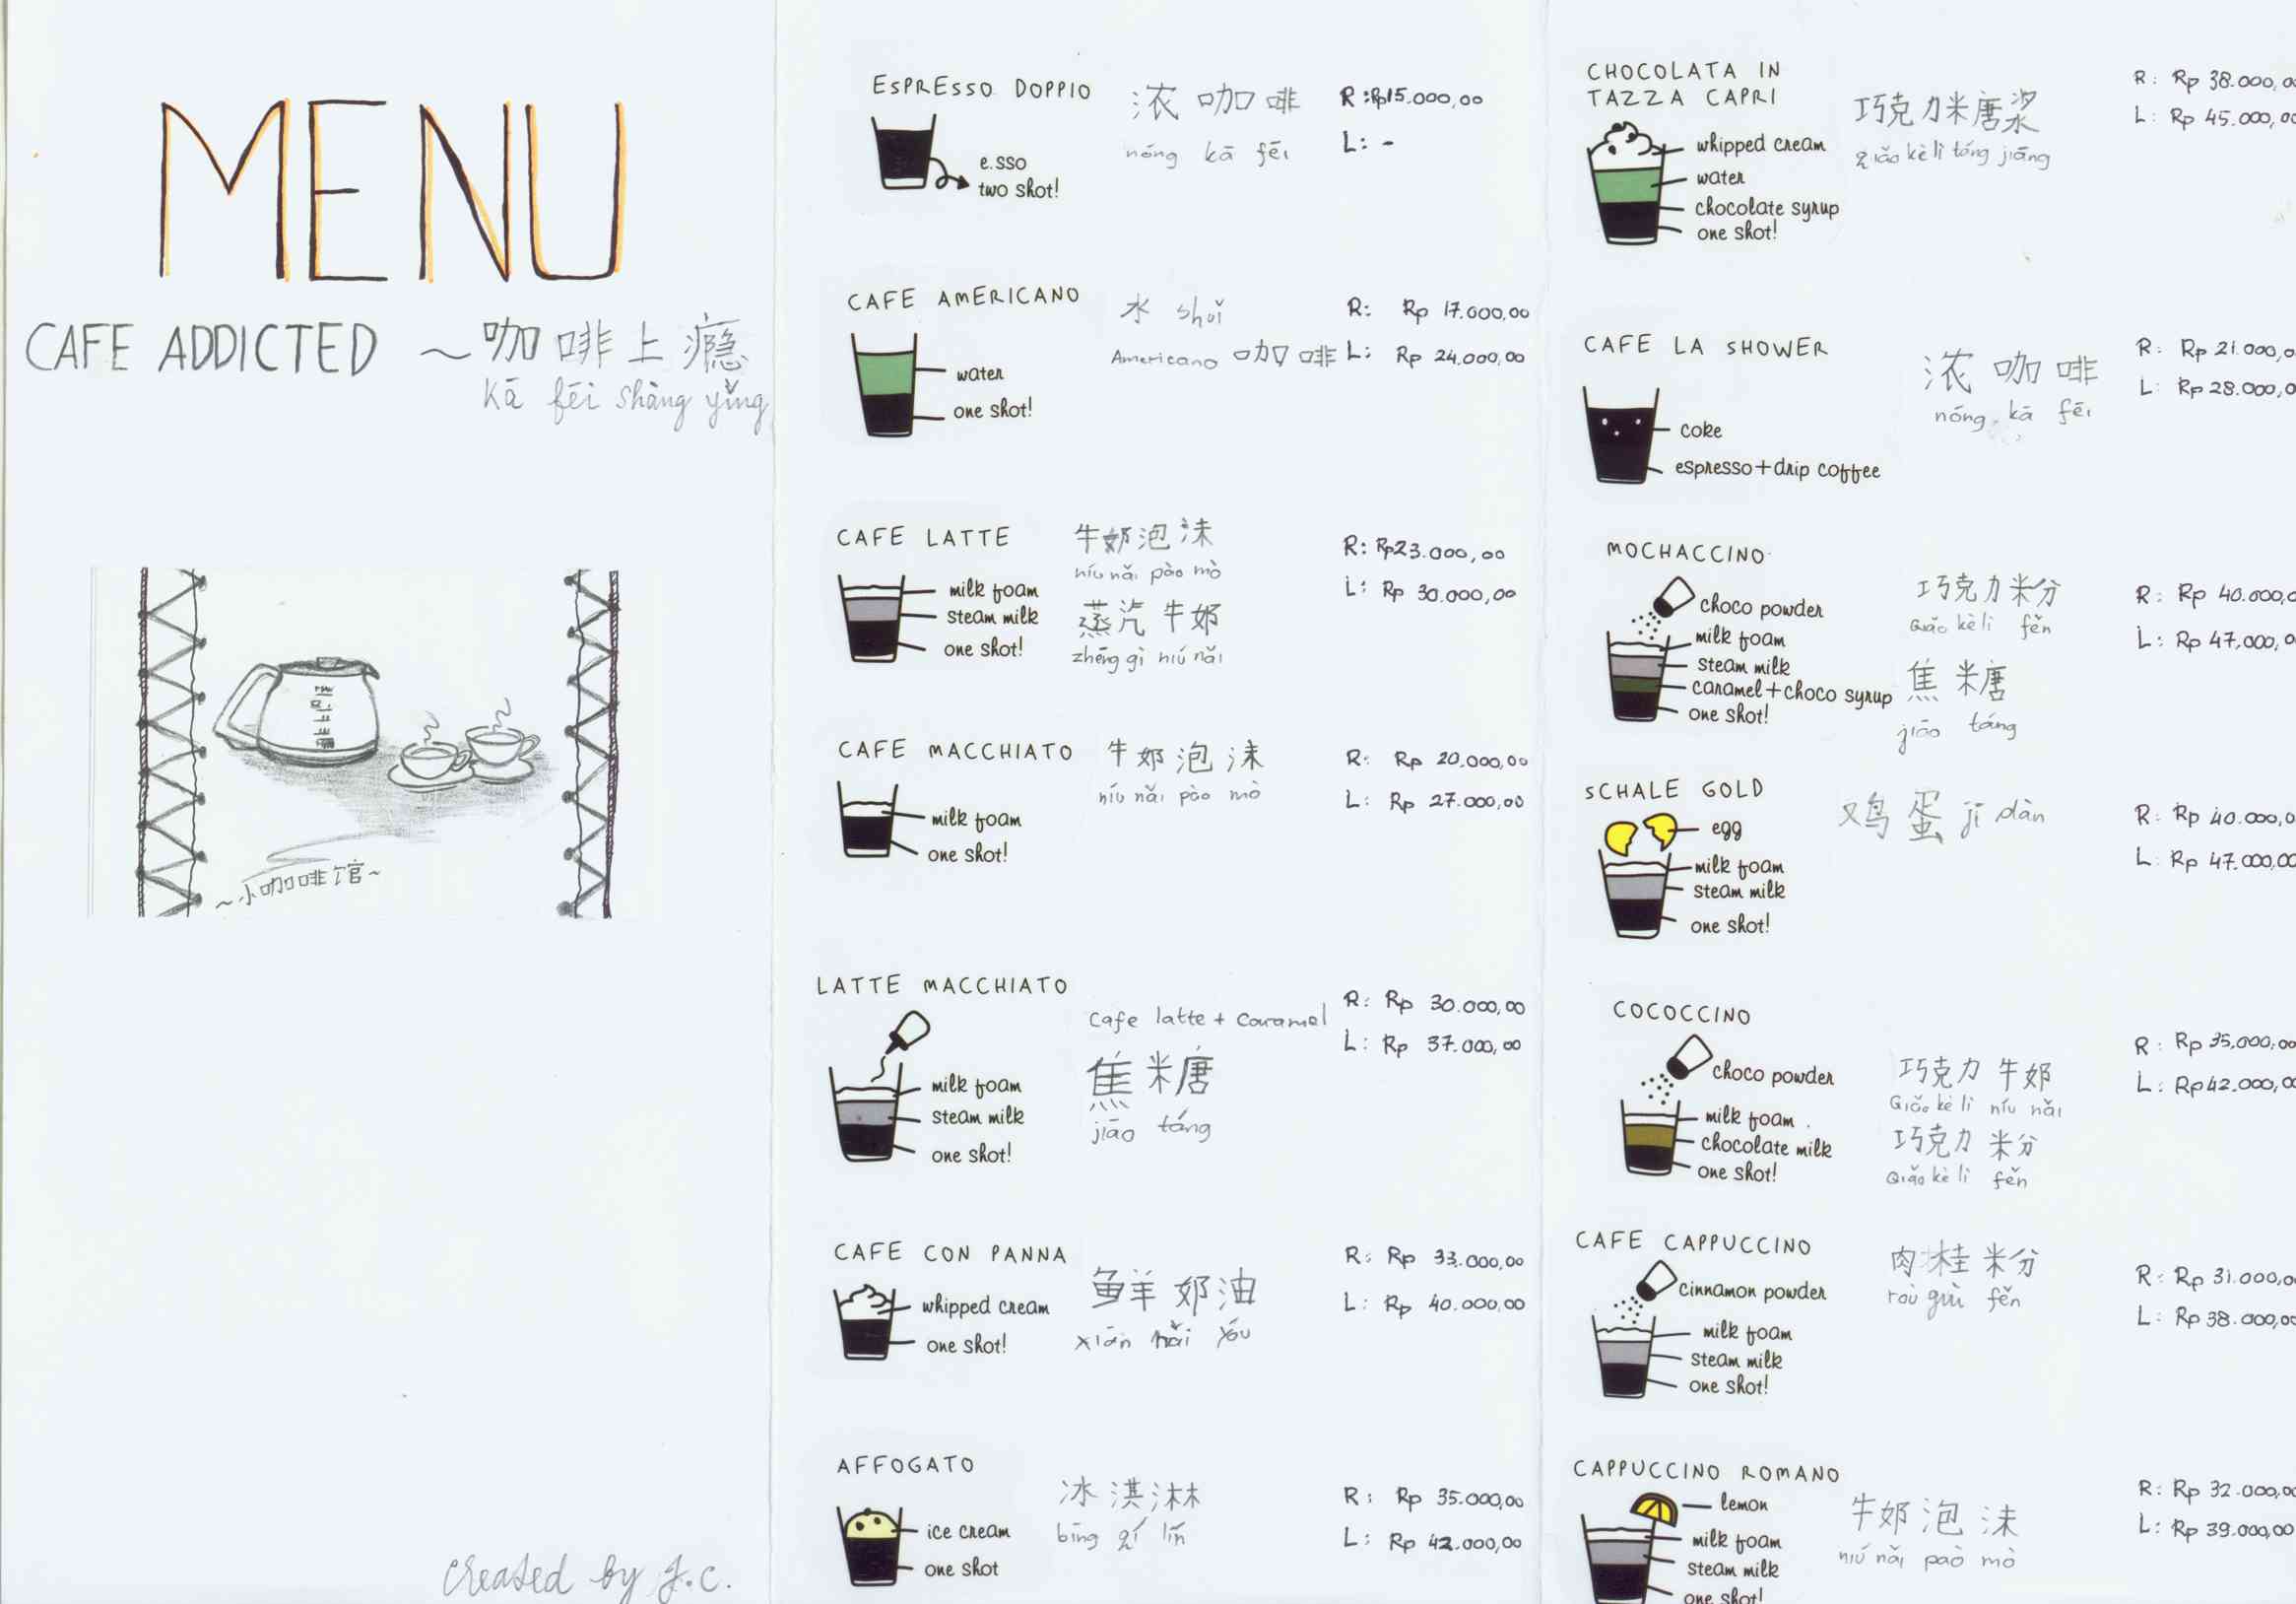 MENU
CAFE ADDICTED ~ 咖啡上瘾
Kā fēi shàng yǐng
~小咖啡馆~
created by J.C.
ESPRESSO DOPPIO
e.sso
two shot!
浓咖啡
nóng kā fēi
R: Rp15.000,00
L: -
CAFE AMERICANO
water
one shot!
水 shuǐ
Americano 咖啡
R: Rp 17.000,00
L: Rp 24.000,00
CAFE LATTE
milk foam
steam milk
one shot!
牛奶泡沫
níu nǎi pào mò
蒸汽牛奶
zhēng qì niú nǎi
R: Rp23.000,00
L: Rp 30.000,00
CAFE MACCHIATO
milk foam
one shot!
牛奶泡沫
níu nǎi pào mò
R: Rp 20.000,00
L: Rp 27.000,00
LATTE MACCHIATO
milk foam
steam milk
one shot!
Cafe latte + caramel
焦糖
jiāo táng
R: Rp 30.000,00
L: Rp 37.000,00
CAFE CON PANNA
whipped cream
one shot!
鲜奶油
xiān nǎi yóu
R: Rp 33.000,00
L: Rp 40.000,00
AFFOGATO
ice cream
one shot
冰淇淋
bīng qí lín
R: Rp 35.000,00
L: Rp 42.000,00
CHOCOLATA IN
TAZZA CAPRI
whipped cream
water
chocolate syrup
one shot!
巧克力糖浆
qiǎo kè lì táng jiāng
R: Rp 38.000,0
L: Rp 45.000,0
CAFE LA SHOWER
coke
espresso+drip coffee
浓咖啡
nóng kā fēi
R: Rp 21.000,0
L: Rp 28.000,0
MOCHACCINO
choco powder
milk foam
steam milk
caramel+choco syrup
one shot!
巧克力粉
Qiǎo kè lì fěn
焦糖
jiāo táng
R: Rp 40.000,0
L: Rp 47.000,0
SCHALE GOLD
egg
milk foam
steam milk
one shot!
鸡蛋 jī dàn
R: Rp 40.000,0
L: Rp 47.000,00
COCOCCINO
choco powder
milk foam
chocolate milk
one shot!
巧克力牛奶
Qiǎo kè lì níu nǎi
巧克力粉
Qiǎo kè lì fěn
R: Rp 35.000,00
L: Rp42.000,00
CAFE CAPPUCCINO
cinnamon powder
milk foam
steam milk
one shot!
肉桂粉
ròu guì fěn
R: Rp 31.000,0
L: Rp 38.000,00
CAPPUCCINO ROMANO
lemon
milk foam
steam milk
one shot!
牛奶泡沫
niú nǎi paò mò
R: Rp 32.000,00
L: Rp 39.000,00